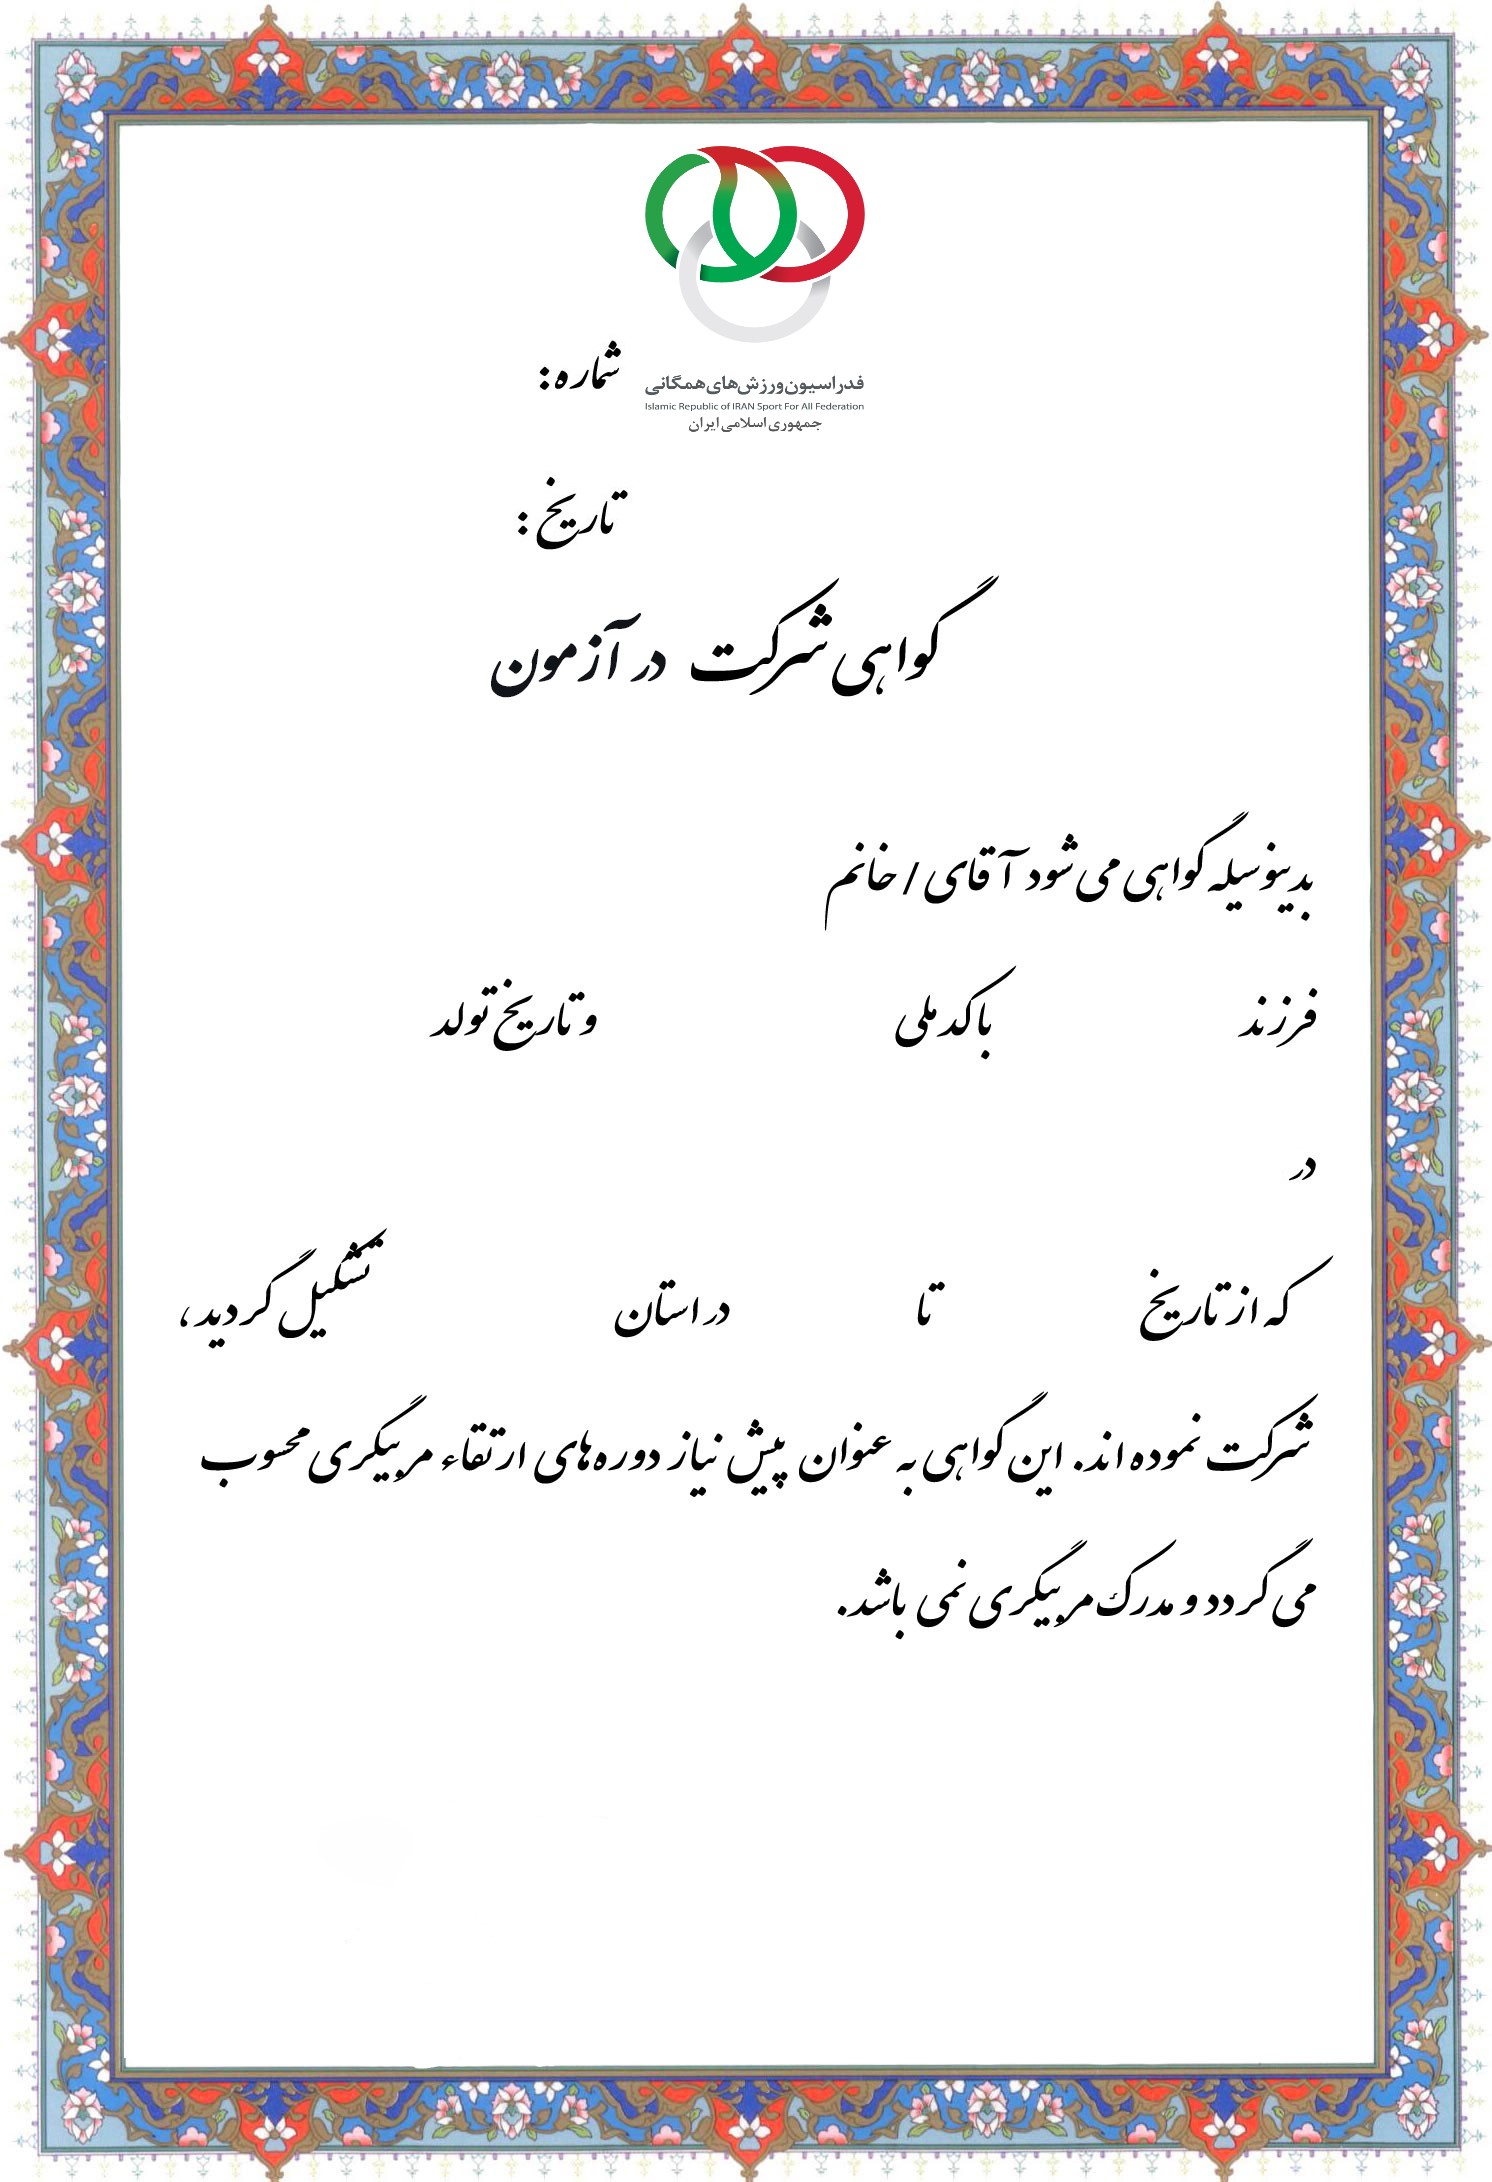 شماره:
فدراسیون ورزش‌های همگانی
Islamic Republic of IRAN Sport For All Federation
جمهوری اسلامی ایران
تاریخ:
گواهی شرکت در آزمون
بدینوسیله گواهی می شود آقای / خانم
فرزند با کد ملی و تاریخ تولد
در
که از تاریخ تا در استان تشکیل گردید،
شرکت نموده اند. این گواهی به عنوان پیش نیاز دوره های ارتقاء مربیگری محسوب
می گردد و مدرک مربیگری نمی باشد.